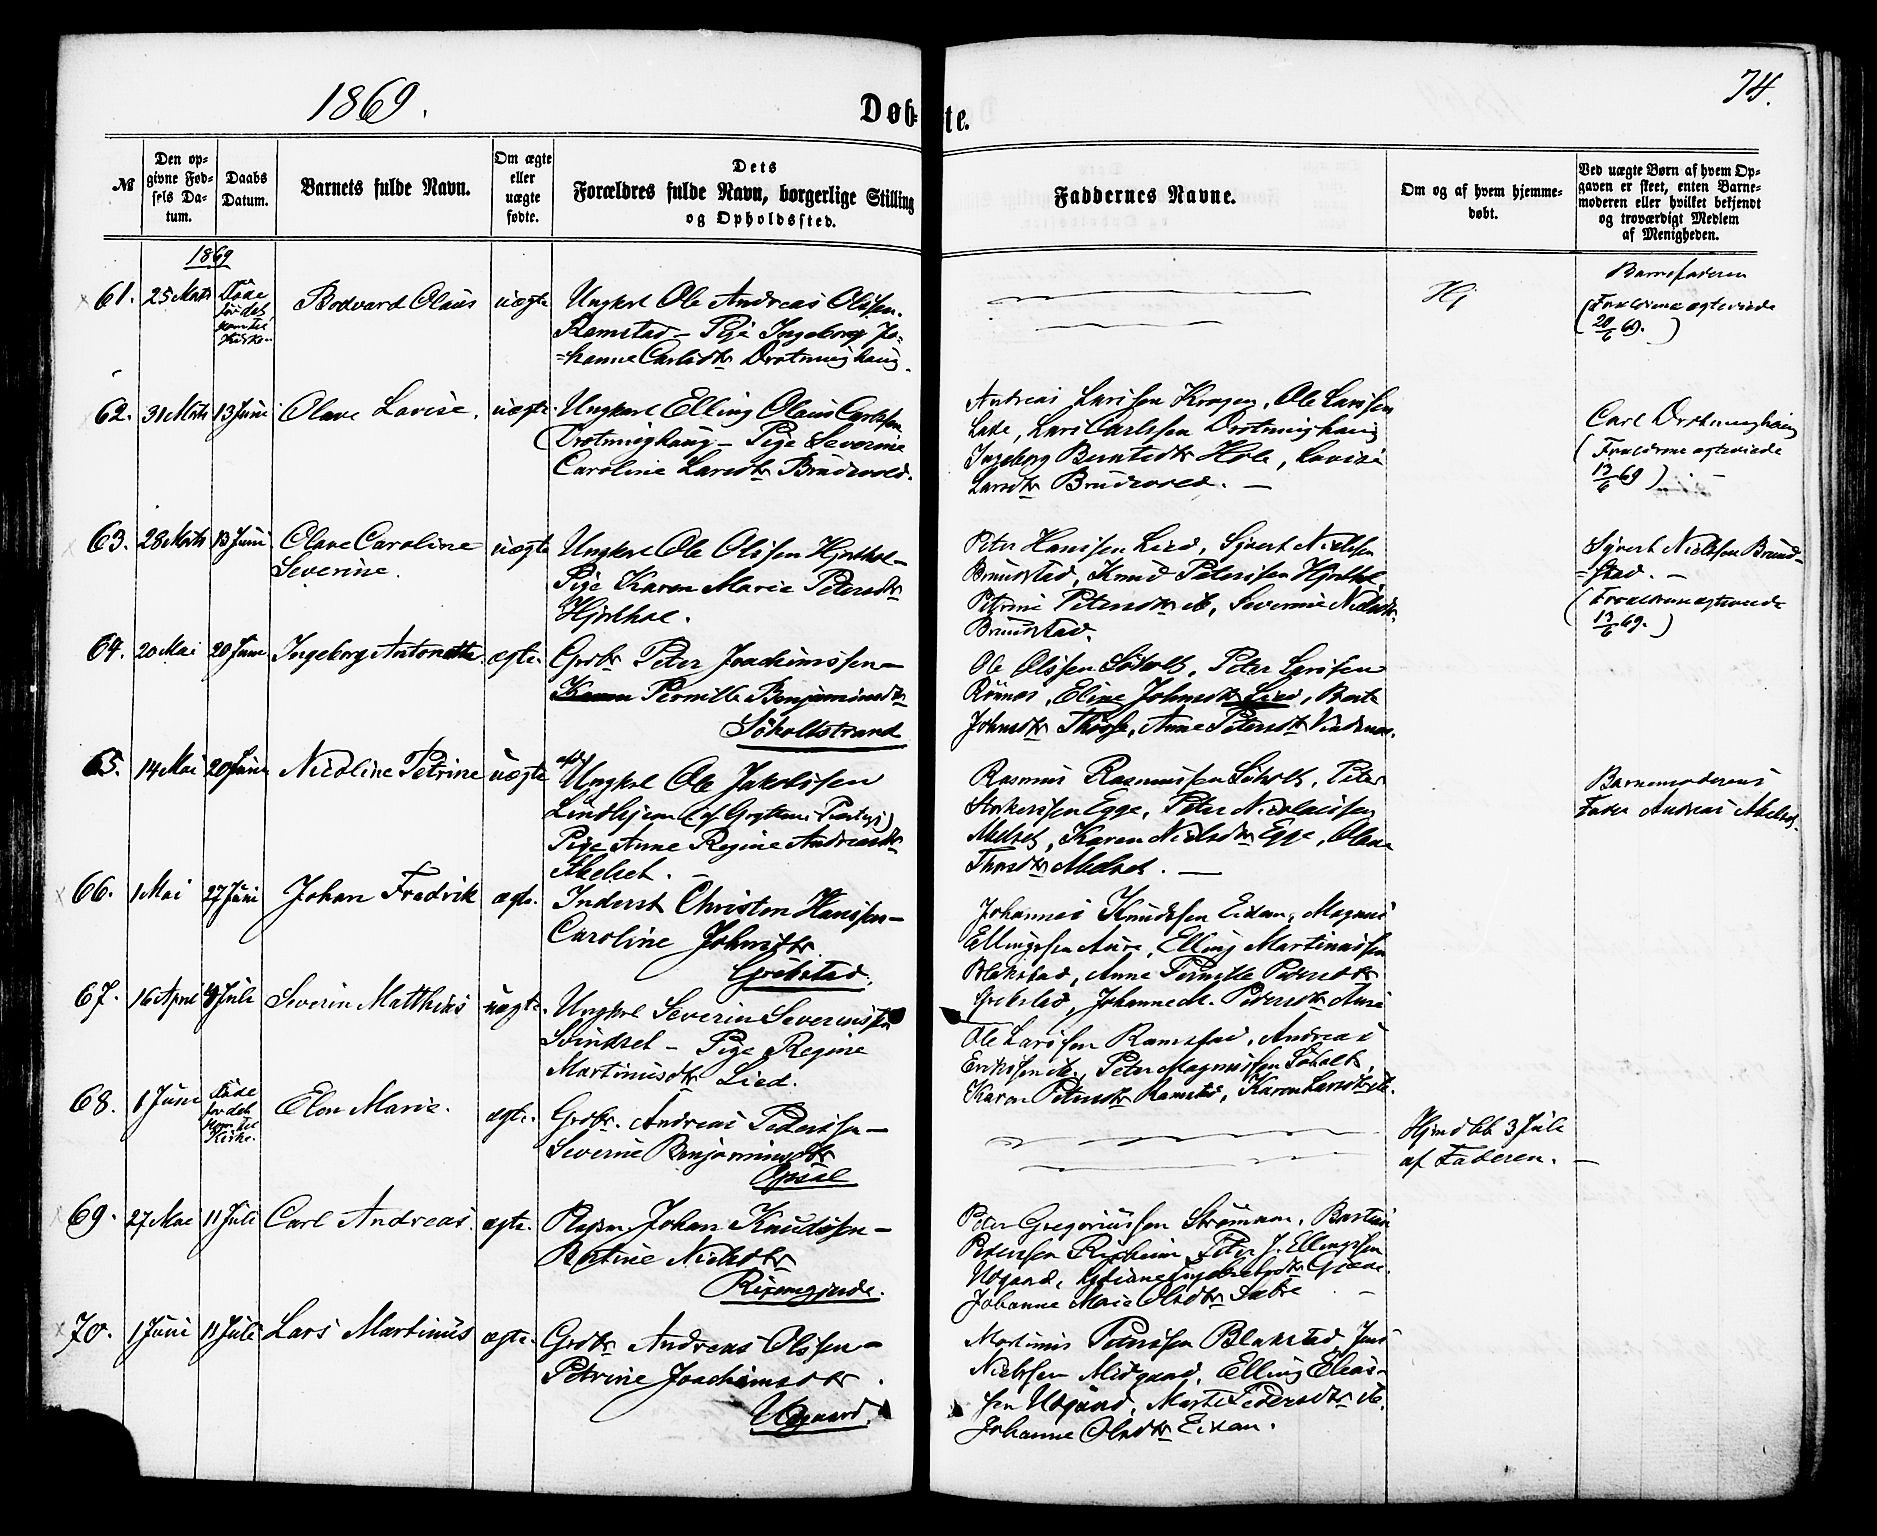 1869.
Døb-
te.
74.
№
Den op-
givne Fød-
sels Da-
tum.
Daabs
Datum.
Barnets fulde Navn.
Om ægte
eller
uægte
fødte.
Dets
Forældres fulde Navn, borgerlige Stilling
og Opholdssted.
Faddernes Navne.
Om og af hvem hjemme-
døbt.
Ved uægte Børn af hvem Op-
gaven er skeet, enten Barne-
moderen eller hvilket bekjendt
og troværdigt Medlem
af Menigheden.
1869
61.
25 Marts
Døde
før det
kom til
Kirke
Bodvard Olaus
uægte
Ungkarl Ole Andreas Olssen
Ramstad – Pige Ingeborg Jo-
=hanne Carlsdtr Drotninghaug.
Hj
Barnefaderen
(Forældrene ægteviede
20/6 69.)
62.
31 Marts
13 Juni
Olave Lovise.
uægte
Ungkarl Elling Olaus Carlssen
Drotninghaug – Pige Severine
Caroline Larsdtr Brudevold.
Andreas Larssen Kragen, Ole Larssen
Lade, Lars Carlssen Drotninghaug
Ingeborg Berntsdtr Hole, Lovise
Larsdtr Brudevold. –
Carl Drotninghaug
(Forældrene ægteviede
13/6 69)
63.
28 Marts
13 Juni
Olave Caroline
Severine.
uægte
Ungkarl Ole Olssen Hjorthol –
Pige Karen Marie Petersdtr
Hjorthol.
Peter Hanssen Lied, Sjvert Nielssen
Brunstad, Knud Peterssen Hjorthol,
Petrine Petersdtr ib, Severine Nielsdtr
Brunstad.
Sjvert Nielssen Brund-
=stad. –
(Forældrene ægteviede
13/6 69.)
64.
20 Mai
20 Juni
Ingeborg Antonette.
ægte.
Grdbr Peter Joachimssen –
Karen Pernille Benjaminsdtr
Søholtstrand
Ole Olssen Søholt, Peter Larssen
Rømos, Eline Johnsdtr Lied, Berte
Johnsdtr Thosse, Anne Petersdtr
65.
14 Mai
20 Juni
Nicoline Petrine
uægte
Ungkl Ole Jakobssen
Lindhjem (af Gryttens Prestegj)
Pige Anne Regine Andreasdtr
Abelset. –
Rasmus Rasmussen Søholt, Peter
Egge, Peter Nicolaissen
Abelset, Karen Nielsdtr Egge, Olave
Thorsdtr Abelset. –
Barnemoderens
Fader Andreas Abelset.
66.
1 Mai
27 Juni
Johan Fredrik
ægte.
Inderst Christen Hanssen –
Caroline Johnsdtr
Grebstad.
Johannes Knudssen Eidem, Magnus
Ellingssen Aure, Elling Martinussen
Blakstad, Anne Pernille Pedersdtr
Grebstad, Johanne M. Pedersdtr Aure
67.
16 April
4 Juli
Severin Matthias
uægte.
Ungkl Severin Severinssen
Sindset – Pige Regine
Martinusdtr Lied.
Ole Larssen Ramstad, Andreas
Erikssen ib., Peter Magnussen Søholt,
Karen Petersdtr Ramstad, Karen Larsdtr ib.
68.
1 Juni
Døde
før det
kom til
Kirke.
Elen Marie.
ægte.
Grdbr. Andreas Pederssen –
Severine Benjaminsdtr
Opsal
Hjmdbt 3 Juli
af Faderen. –
69.
27 Mai
11 Juli
Carl Andreas.
ægte.
Johan Knudssen –
Bertine Nielsdtr
Rixemgjerde.
Peter Gregoriussen Strømmen, Bastian
Pederssen Rixheim, Peter J. Ellingssen
Utgaard,
Johanne Marie Olsdtr Sætre –
70.
1 Juni
11 Juli
Lars Martinus
ægte.
Grdbr Andreas Olssen –
Petrine Joachimsdtr.
Utgaard.
Martinus Peterssen Blakstad, Jens
Nielssen Midgaard, Elling Elias-
sen Utgaard, Marte Pedersdtr ib.
Johanne Olsdtr Eidem.